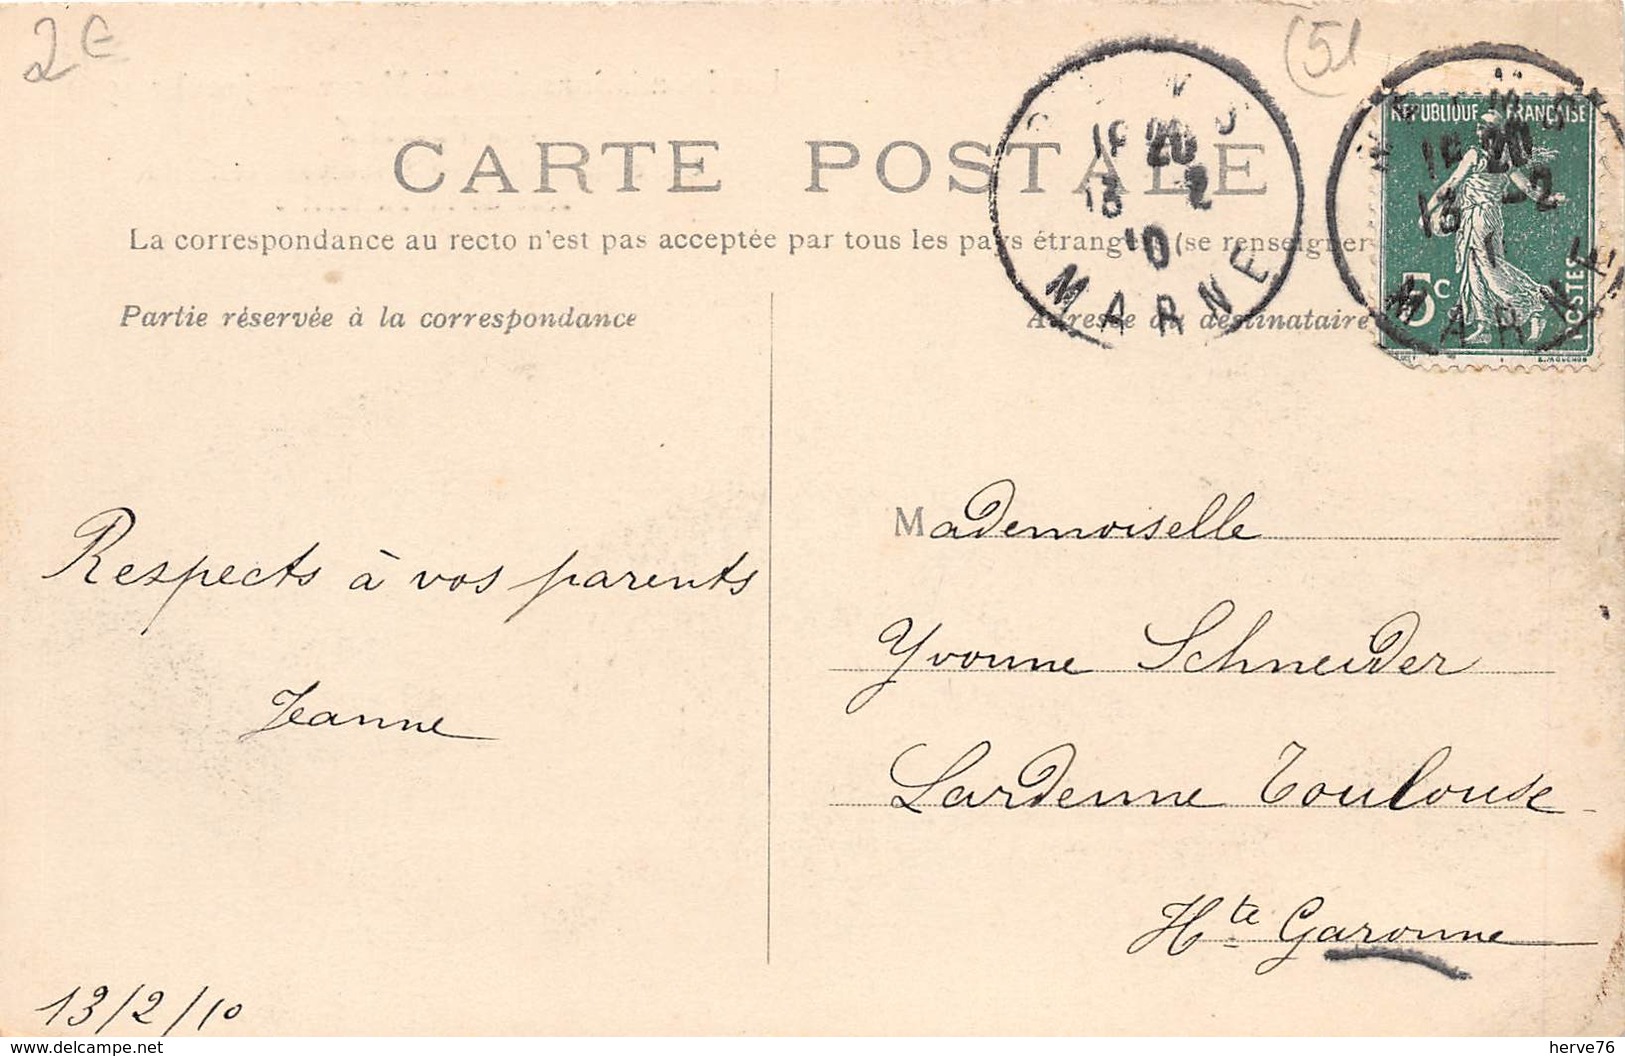 2€
(51
CARTE POSTALE
La correspondance au recto n'est pas acceptée par tous les pays étrangers (se renseigner
Partie réservée à la correspondance
Adresse du destinataire
REPUBLIQUE FRANÇAISE
5c
POSTES
20
13 2
10
MARNE
20
13 2
MARNE
Mademoiselle
Yvonne Schneider
Lardenne Toulouse
Hte Garonne
Respects à vos parents
Jeanne
13/2/10
www.delcampe.net
herve76